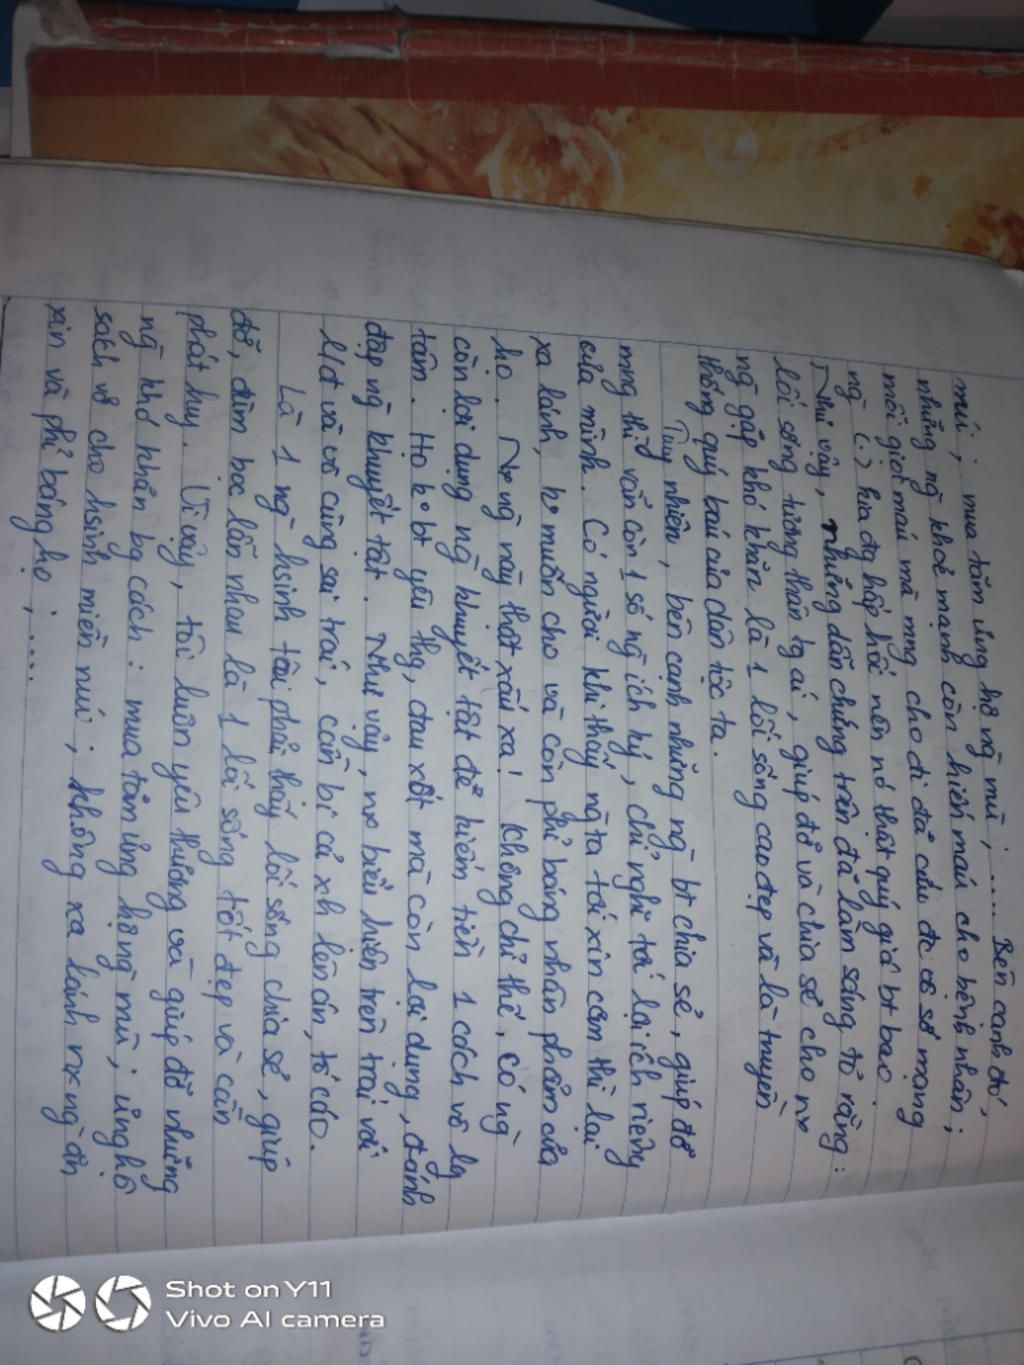 núi ; mua tăm ủng hộ ng mù ; ..... Bên cạnh đó,
những ng khoẻ mạnh còn hiến máu cho bệnh nhân ;
mỗi giọt máu mà mng cho đi đã cứu đc vô số mạng
ng (.) hia đg hấp hối nên nó thật quý giá bt bao
Như vậy, những dẫn chứng trên đã làm sáng tỏ rằng :
lối sống tương thân tg ái, giúp đỡ và chia sẻ cho
ng gặp khó khăn là 1 lối sống cao đẹp và là truyền
thống quý báu của dân tộc ta.
Tuy nhiên, bên cạnh những ng bt chia sẻ, giúp đỡ
mng thì vẫn còn 1 số ng ích kỷ, chỉ nghĩ tới lợi ích riêng
của mình. Có người khi thấy ng ta tới xin cơm thì lại
xa lánh, ko muốn cho và còn phỉ báng nhân phẩm của
họ. ng này thật xấu xa! Không chỉ thế, có ng
còn lợi dụng ng khuyết tật để kiếm tiền 1 cách vô lg
tâm. Họ ko bt yêu thg, đau xót mà còn lợi dụng, đánh
đập ng khuyết tật. Như vậy, biểu hiện trên trái với
l/đ và vô cùng sai trái, cần bị cả xh lên án, tố cáo.
Là 1 ng hsinh tôi phải thấy lối sống chia sẻ, giúp
đỡ, đùm bọc lẫn nhau là 1 lối sống tốt đẹp và cần
phát huy. Vì vậy, tôi luôn yêu thương và giúp đỡ những
ng khó khăn bg cách : mua tăm ủng hộ ng mù ; ủng hộ
sách vở cho hsinh miền núi ; không xa lánh ng ăn
xin và phỉ báng họ ; .....
Shot on Y11
Vivo AI camera